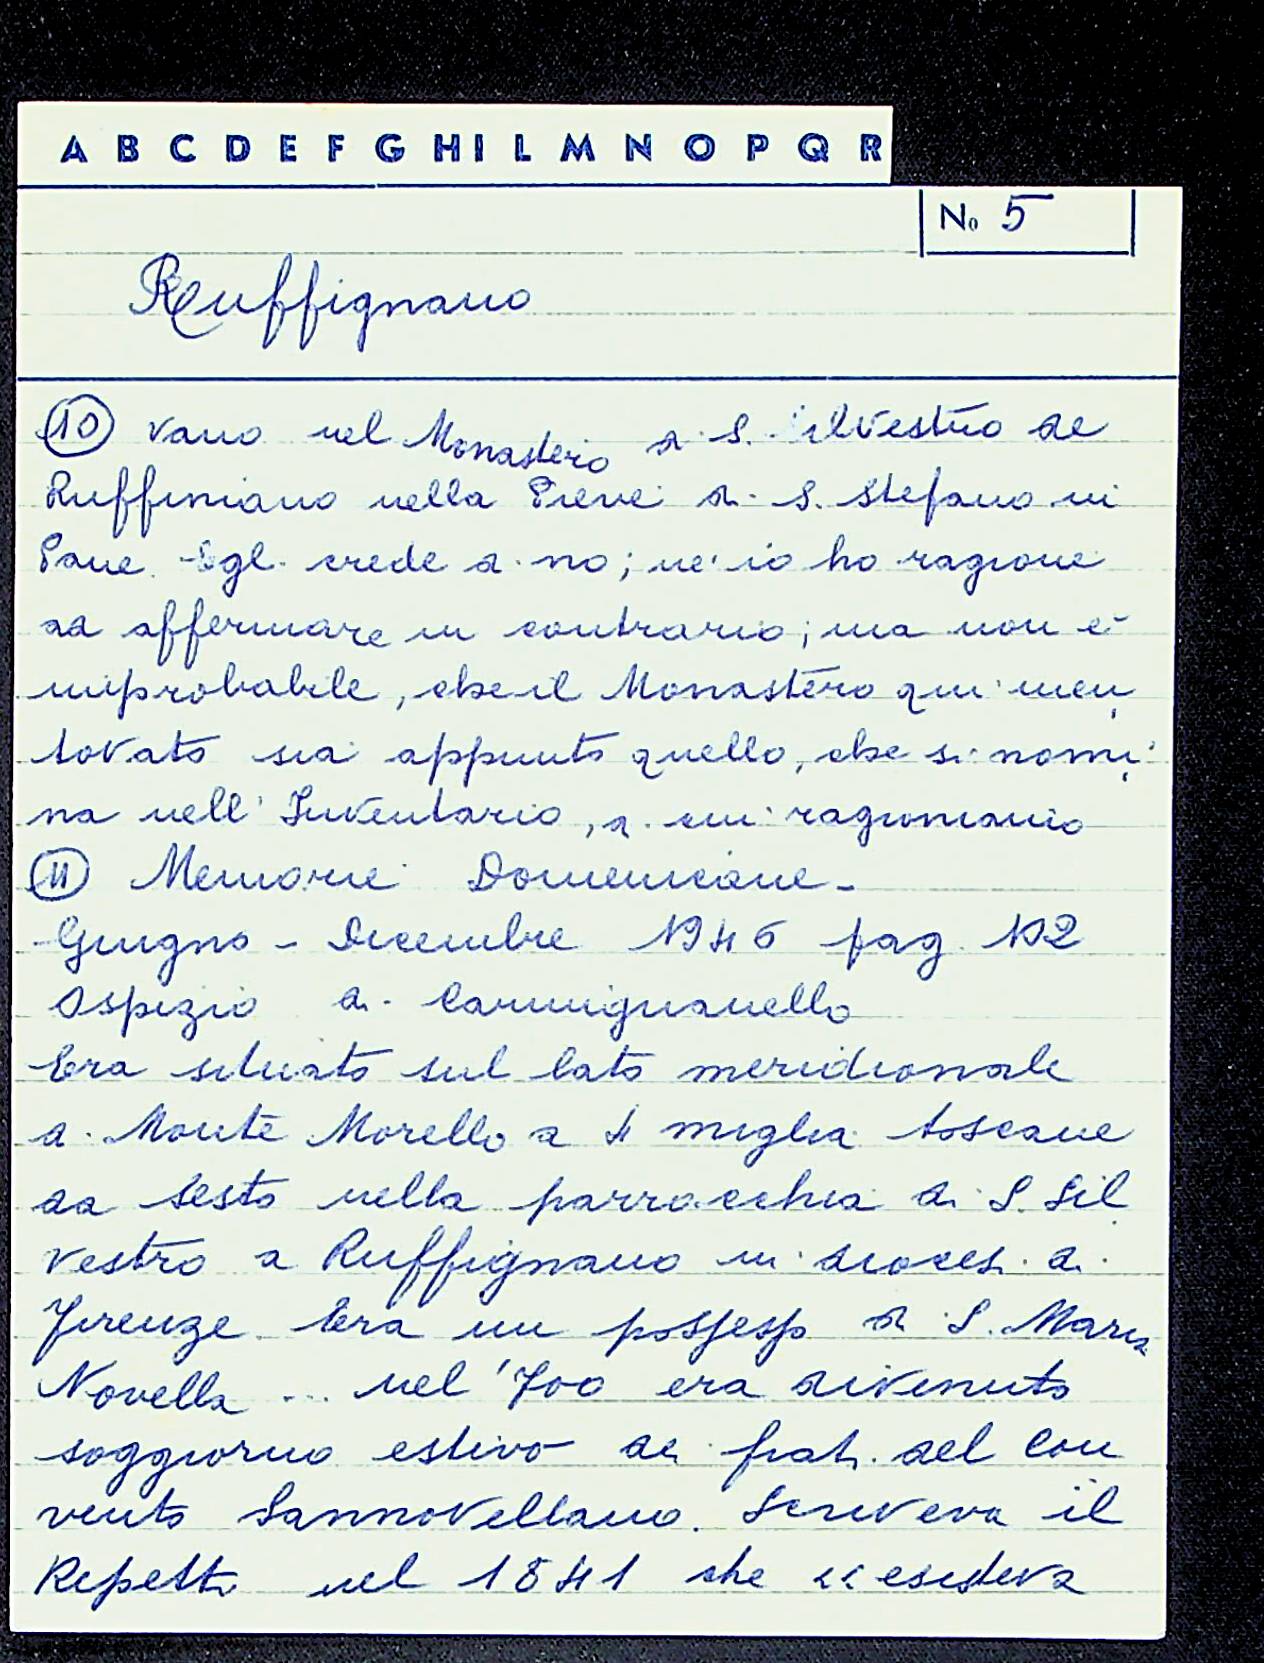 A B C D E F G H I L M N O P Q R
No 5
Ruffignano
10 vano nel Monastero di S. Silvestro de
Ruffiniano nella Pieve di S. Stefano in
Pane. Egli crede di no; nè io ho ragione
ad affermare in contrario; ma non è
improbabile, che il Monastero qui men
tovato sia appunto quello, che si nomi
na nell' Inventario, di cui ragioniamo
11 Memorie Domenicane -
Giugno - Dicembre 1946 pag. 102
Ospizio di Carmignanello
Era situato sul lato meridionale
di Monte Morello a 4 miglia toscane
da Sesto nella parrocchia di S. Sil
vestro a Ruffignano in diocesi di
Firenze. Era un possesso di S. Maria
Novella ... nel '700 era divenuto
soggiorno estivo dei frati del Con
vento Sannovellano. Scriveva il
Repetti nel 1841 che "esisteva